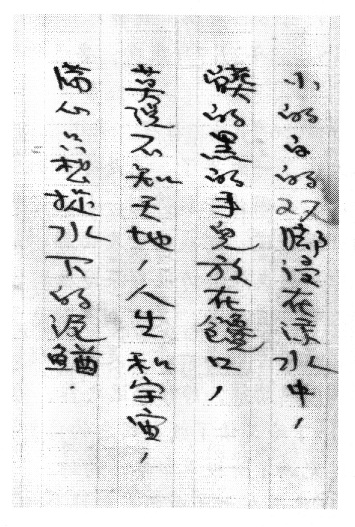 小的白的双腳浸在凉水中，
髒的黑的手兒放在口，
莫說不知天地，人生和宇宙，
心只想捉水下的泥鰌.